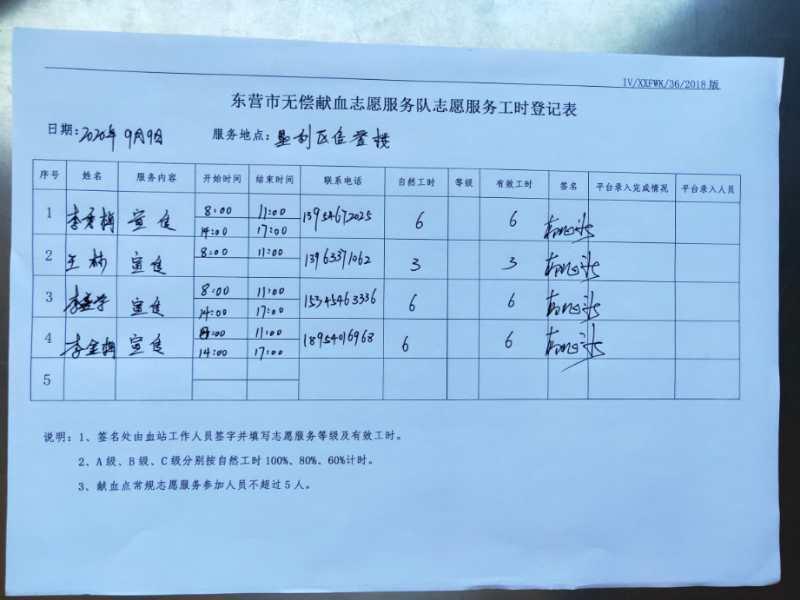 IV/XXFWK/36/2018版
东营市无偿献血志愿服务队志愿服务工时登记表
日期:2020年9月9日 服务地点:垦利区住盛楼
序号 姓名 服务内容 开始时间 结束时间 联系电话 自然工时 等级 有效工时 签名 平台录入完成情况 平台录入人员
1 李秀梅 宣传 8:00 11:00 13954672025 6 6
14:00 17:00
2 王林 宣传 8:00 11:00 13963371062 3 3
3 宣传 8:00 11:00 15345463336 6 6
14:00 17:00
4 李金梅 宣传 8:00 11:00 18954016968 6 6
14:00 17:00
5
说明:1、签名处由血站工作人员签字并填写志愿服务等级及有效工时。
2、A级、B级、C级分别按自然工时100%、80%、60%计时。
3、献血点常规志愿服务参加人员不超过5人。